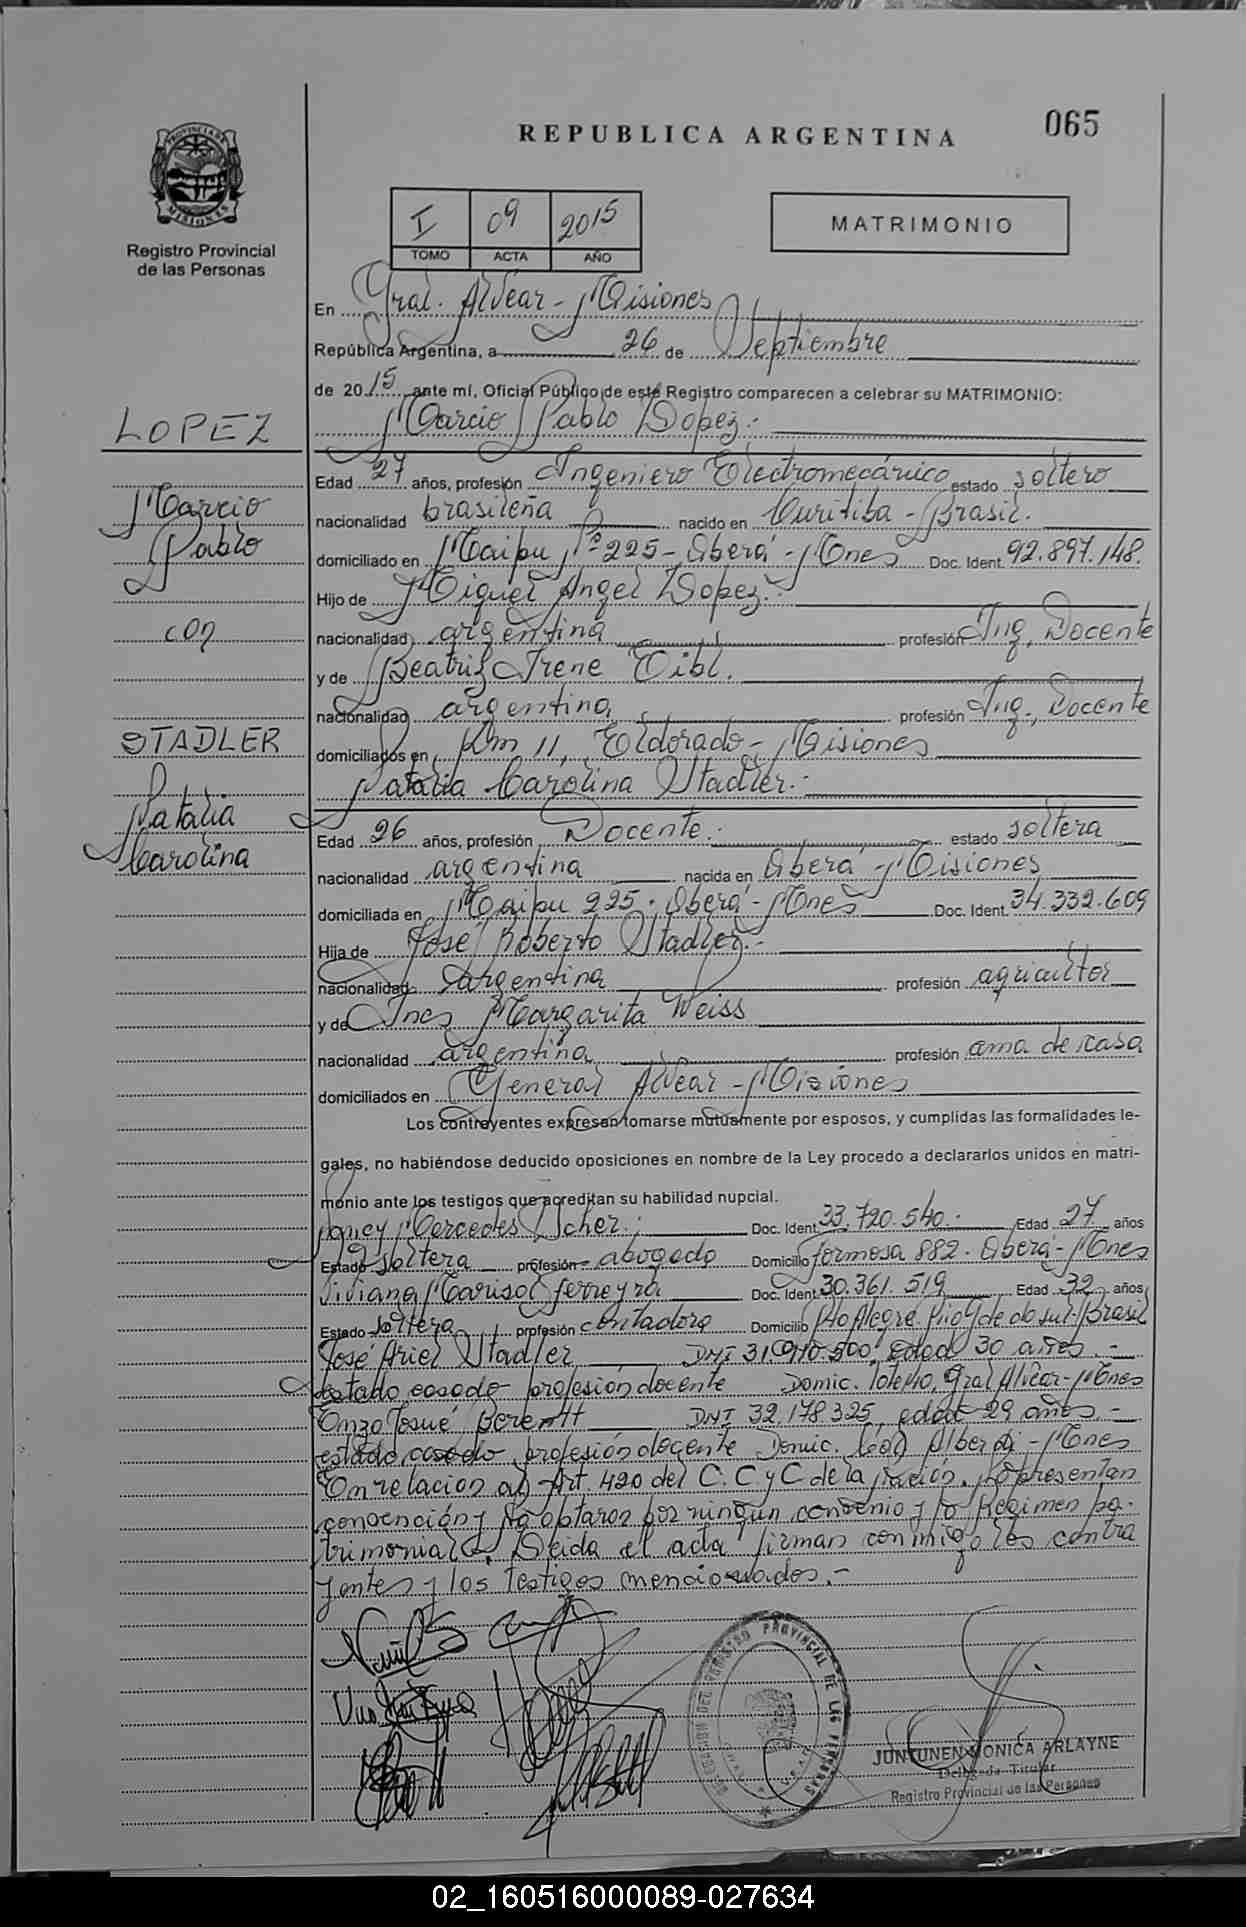 065
REPUBLICA ARGENTINA
PROVINCIA DE MISIONES
Registro Provincial
de las Personas
I 09 2015
TOMO ACTA AÑO
MATRIMONIO
En Gral. Alvear - Misiones
República Argentina, a 26 de Septiembre
de 2015 ante mí, Oficial Público de este Registro comparecen a celebrar su MATRIMONIO:
LOPEZ
Marcio Pablo Lopez.-
Edad 27 años, profesión Ingeniero Electromecánico estado soltero
Marcio
nacionalidad brasileña nacido en Curitiba - Brasil.
Pablo
domiciliado en Maipu Nº 225 - Oberá - Mnes Doc. Ident. 92.897.148.
Hijo de Miguel Angel Lopez.-
con
nacionalidad argentina profesión Ing. Docente
y de Beatriz Irene Eibl.
nacionalidad argentina profesión Ing., Docente
STADLER
domiciliados en Km 11, Eldorado - Misiones
Natalia Carolina Stadler.-
Natalia
Edad 26 años, profesión Docente.- estado soltera
Carolina
nacionalidad argentina nacida en Oberá - Misiones
domiciliada en Maipu 225 - Oberá - Mnes Doc. Ident. 34.332.609
Hija de José Roberto Stadler.-
nacionalidad argentina profesión agricultor
y de Ines Margarita Weiss
nacionalidad argentina profesión ama de casa
domiciliados en General Alvear - Misiones
Los contrayentes expresan tomarse mutuamente por esposos, y cumplidas las formalidades le-
gales, no habiéndose deducido oposiciones en nombre de la Ley procedo a declararlos unidos en matri-
monio ante los testigos que acreditan su habilidad nupcial.
Nancy Mercedes Scher.; Doc. Ident. 33.720.540.- Edad 27 años
Estado soltera profesión abogada Domicilio Formosa 882 - Oberá - Mnes
Viviana Marisol Ferreyra Doc. Ident. 30.361.519 Edad 32 años
Estado soltera profesión contadora Domicilio Pto Alegre do sul - Brasil
José Ariel Stadler DNI 31.910.500 edad 30 años.-
estado casado profesión docente Domic. Gral Alvear - Mnes
Enzo Josué Berentt DNI 32.178.325, edad 29 años.-
estado casado profesión docente Domic. Alberdi - Mnes
En relacion al Art. 420 del C.C.y C de la Nación. No presentan
convención y no optaron por ningun convenio y/o Regimen pa-
trimonial. Leida el acta firman conmigo los contra
yentes y los testigos mencionados.-
DELEGACION DEL REGISTRO PROVINCIAL DE LAS PERSONAS
JUNTUNEN MONICA ARLAYNE
Delegada Titular
Registro Provincial de las Personas
02_160516000089-027634